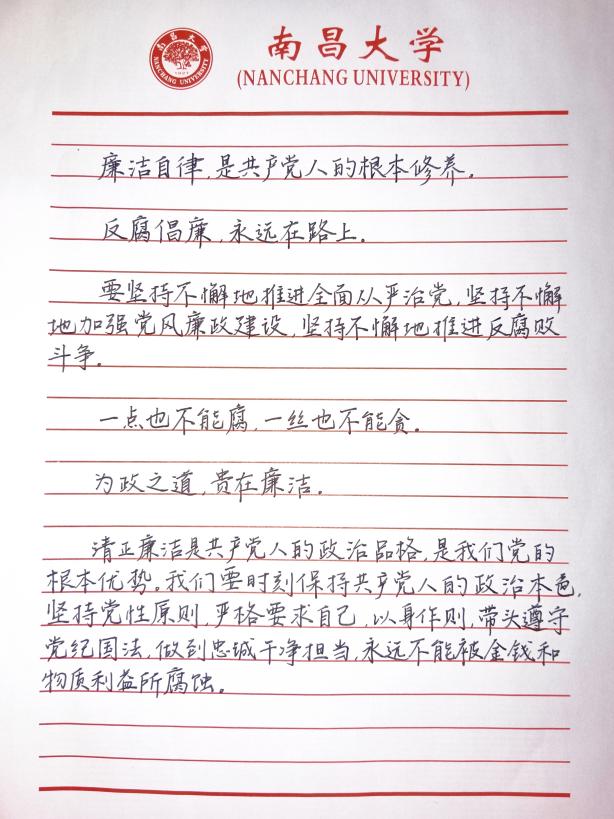 南昌大学
NANCHANG UNIVERSITY
1921
南昌大学
(NANCHANG UNIVERSITY)
廉洁自律，是共产党人的根本修养。
反腐倡廉，永远在路上。
要坚持不懈地推进全面从严治党，坚持不懈
地加强党风廉政建设，坚持不懈地推进反腐败
斗争。
一点也不能腐，一丝也不能贪。
为政之道，贵在廉洁。
清正廉洁是共产党人的政治品格，是我们党的
根本优势。我们要时刻保持共产党人的政治本色，
坚持党性原则，严格要求自己，以身作则，带头遵守
党纪国法，做到忠诚干净担当，永远不能被金钱和
物质利益所腐蚀。